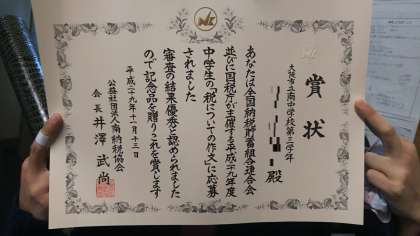 賞状
大阪市立南中学校第三学年
殿
あなたは全国納税貯蓄組合連合会
並びに国税庁が主催する平成二十九年度
中学生の「税についての作文」に応募
されました
審査の結果優秀と認められました
ので記念品を贈りこれを賞します
平成二十九年十一月十三日
公益社団法人南納税協会
会長 井澤武尚